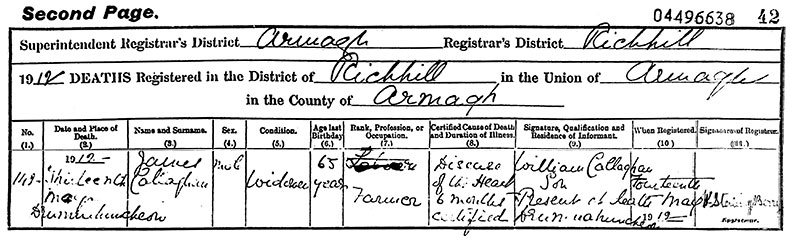 Second Page.
04496638 42
Superintendent Registrar's District Armagh Registrar's District Richhill
1912 DEATHS Registered in the District of Richhill in the Union of Armagh
in the County of Armagh
No. Date and Place of Death. Name and Surname. Sex. Condition. Age last Birthday Rank, Profession, or Occupation. Certified Cause of Death and Duration of Illness. Signature, Qualification and Residence of Informant. When Registered. Signature of Registrar.
(1.) (2.) (3.) (4.) (5.) (6.) (7.) (8.) (9.) (10.) (11.)
1912 James male 65 Disease William Callaghan
149 Thirteenth Callaghan Widower years of the Heart Son Fourteenth
May Farmer 6 months Present at death May
certified 1912
Registrar.